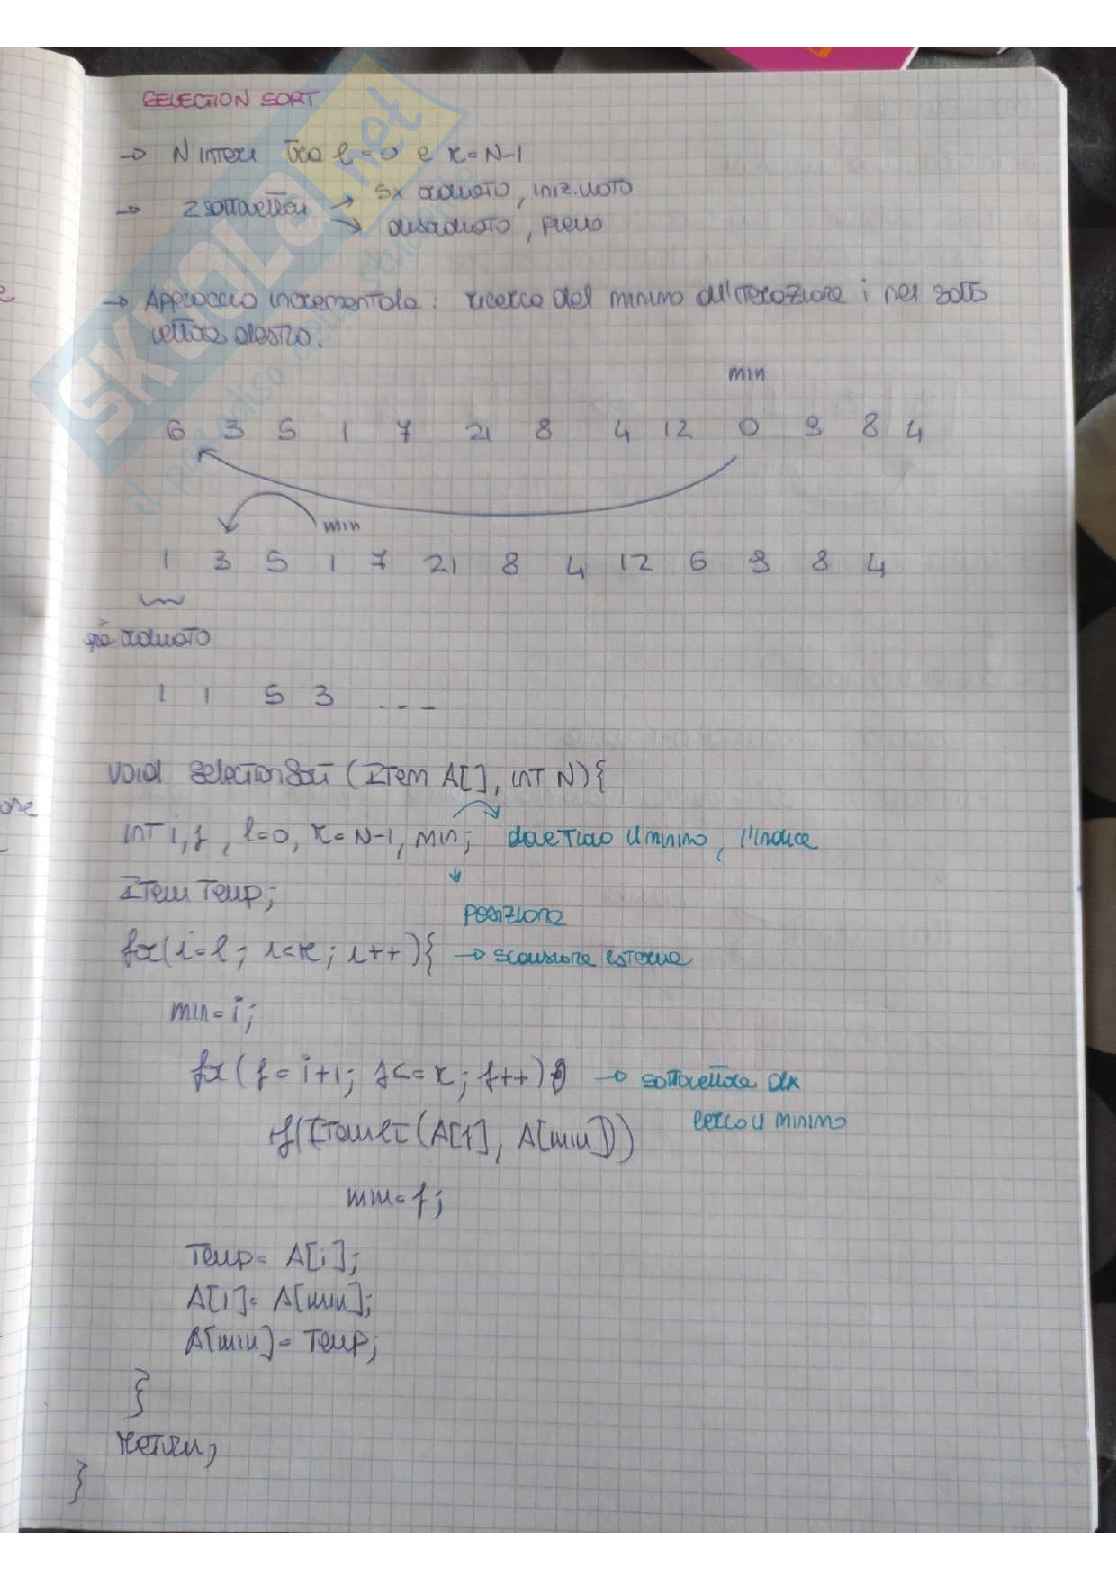 SELECTION SORT
→ N interi tra l=0 e r=N-1
→ 2 sottovettori → sx ordinato, iniz. vuoto
→ disordinato, pieno
→ Approccio incrementale: ricerca del minimo all'iterazione i nel sotto
vettore destro.
min
6 3 5 1 7 21 8 4 12 0 9 8 4
min
1 3 5 1 7 21 8 4 12 6 9 8 4
già ordinato
1 1 5 3 ---
void SelectionSort (Item A[], int N){
int i, j, l=0, r=N-1, min; dove trovo il minimo, l'indice
Item temp;
posizione
for(i=l; i<r; i++){ → scansione esterna
min=i;
for(j=i+1; j<=r; j++) → sottovettore dx
cerco il minimo
if(ItemLT(A[j], A[min]))
min=j;
Temp= A[i];
A[i]= A[min];
A[min]= Temp;
}
return;
}
SKUOLA.net